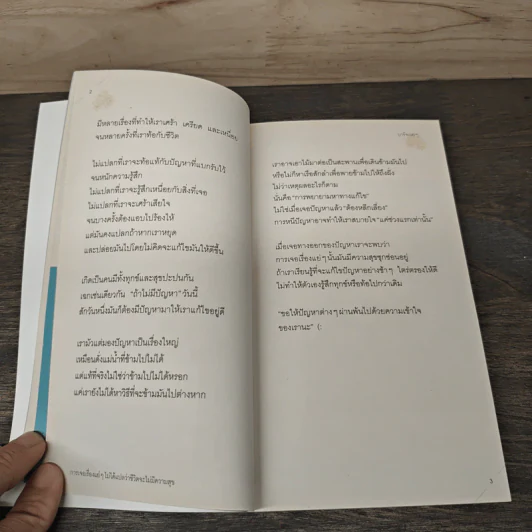 2
มีหลายเรื่องที่ทำให้เราเศร้า เครียด และเหนื่อย
จนหลายครั้งที่เราท้อกับชีวิต
ไม่แปลกที่เราจะท้อแท้กับปัญหาที่แบกรับไว้
จนหนักความรู้สึก
ไม่แปลกที่เราจะรู้สึกเหนื่อยกับสิ่งที่เจอ
ไม่แปลกที่เราจะเศร้าเสียใจ
จนบางครั้งต้องแอบไปร้องไห้
แต่มันคงแปลกถ้าหากเราหยุด
และปล่อยมันไปโดยไม่คิดจะแก้ไขมันให้ดีขึ้น
เกิดเป็นคนมีทั้งทุกข์และสุขปะปนกัน
เฉกเช่นเดียวกัน "ถ้าไม่มีปัญหา" วันนี้
สักวันหนึ่งมันก็ต้องมีปัญหามาให้เราแก้ไขอยู่ดี
เรามัวแต่มองปัญหาเป็นเรื่องใหญ่
เหมือนดั่งแม่น้ำที่ข้ามไปไม่ได้
แต่แท้ที่จริงไม่ใช่ว่าข้ามไปไม่ได้หรอก
แค่เรายังไม่ได้หาวิธีที่จะข้ามมันไปต่างหาก
การเจอเรื่องแย่ๆ ไม่ได้แปลว่าชีวิตจะไม่มีความสุข
เราอาจเอาไม้มาต่อเป็นสะพานเพื่อเดินข้ามมันไป
หรือไม่ก็หาเรือสักลำเพื่อพายข้ามไปให้ถึงฝั่ง
ไม่ว่าเหตุผลอะไรก็ตาม
นั่นคือ "การพยายามหาทางแก้ไข"
ไม่ใช่เมื่อเจอปัญหาแล้ว "ต้องหลีกเลี่ยง"
การหนีปัญหาอาจทำให้เราสบายใจ "แค่ช่วงแรกเท่านั้น"
เมื่อเจอทางออกของปัญหาเราจะพบว่า
การเจอเรื่องแย่ๆ นั้นมันมีความสุขซุกซ่อนอยู่
ถ้าเราเรียนรู้ที่จะแก้ไขปัญหาอย่างช้าๆ ไตร่ตรองให้ดี
ไม่ทำให้ตัวเองรู้สึกทุกข์หรือท้อไปกว่าเดิม
"ขอให้ปัญหาต่างๆ ผ่านพ้นไปด้วยความเข้าใจ
ของเรานะ" (:
3